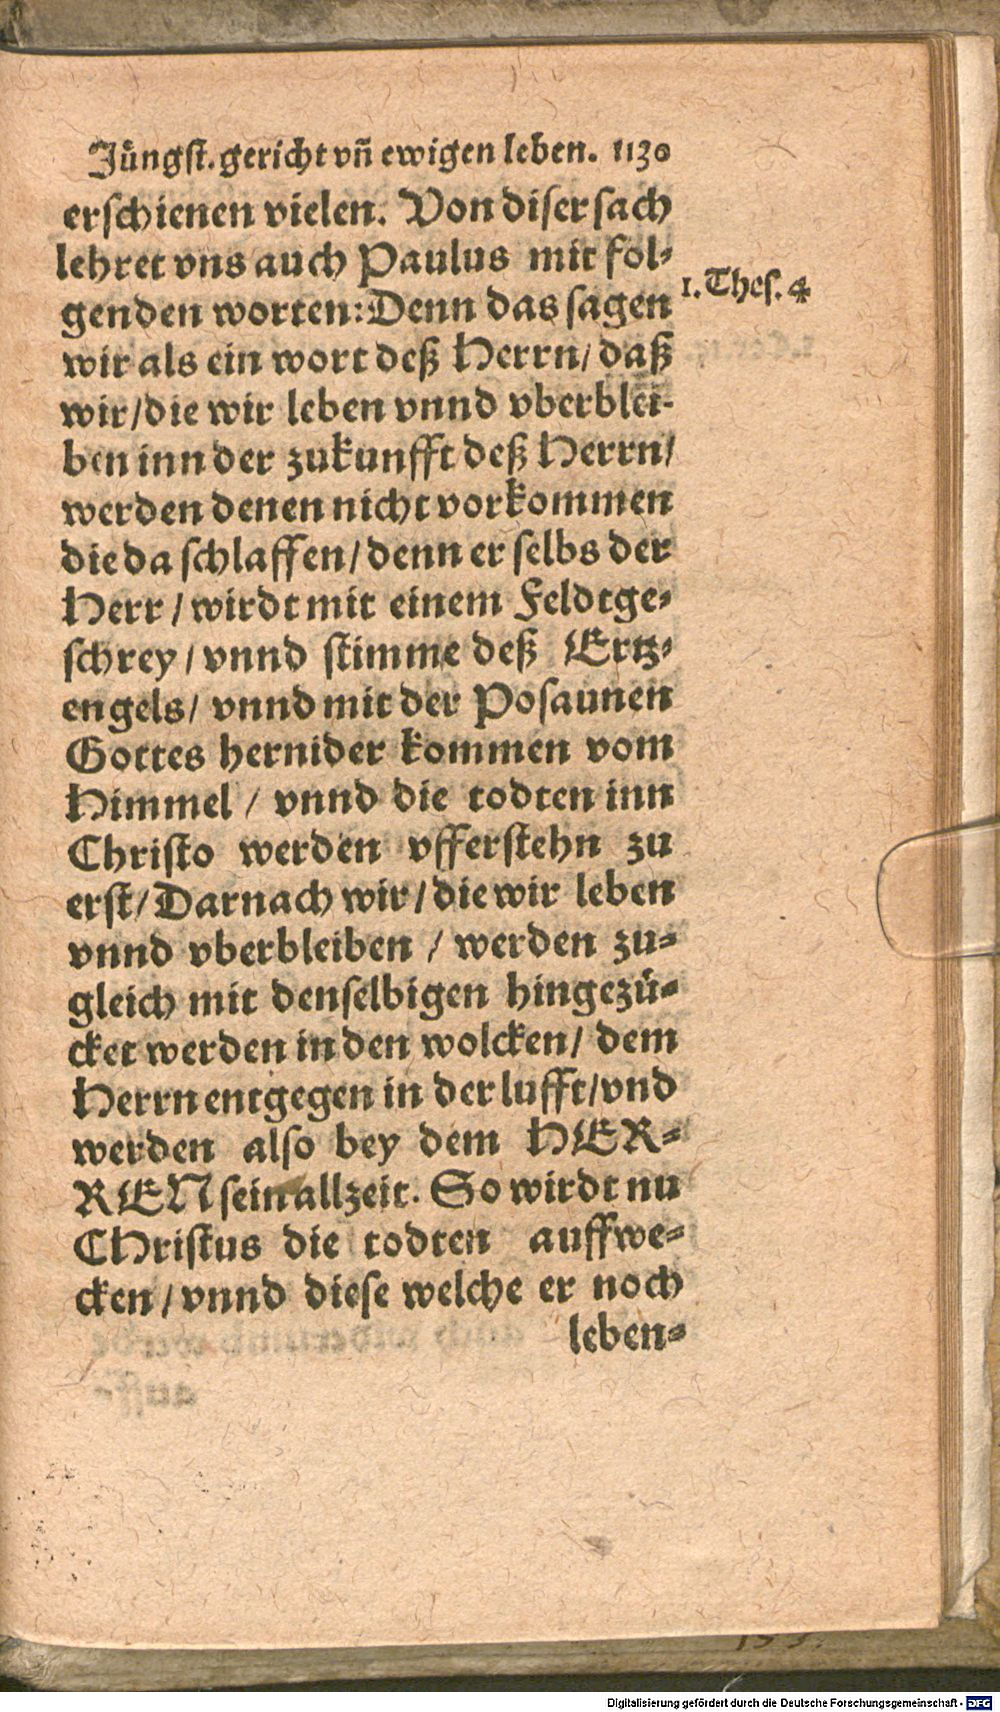 Jüngst. gericht vñ ewigen leben. 1130
erschienen vielen. Von diser sach
lehret vns auch Paulus mit fol-
1. Thes. 4
genden worten: Denn das sagen
wir als ein wort deß Herrn/ daß
wir/ die wir leben vnnd vberblei-
ben inn der zukunfft deß Herrn/
werden denen nicht vorkommen
die da schlaffen/ denn er selbs der
Herr / wirdt mit einem Feldtge-
schrey / vnnd stimme deß Ertz-
engels/ vnnd mit der Posaunen
Gottes hernider kommen vom
Himmel / vnnd die todten inn
Christo werden vfferstehn zu
erst/ Darnach wir/ die wir leben
vnnd vberbleiben / werden zu-
gleich mit denselbigen hingezü-
cket werden in den wolcken/ dem
Herrn entgegen in der lufft/ vnd
werden also bey dem HER-
REN sein allzeit. So wirdt nu
CHristus die todten auffwe-
cken / vnnd diese welche er noch
leben-
Digitalisierung gefördert durch die Deutsche Forschungsgemeinschaft - DFG